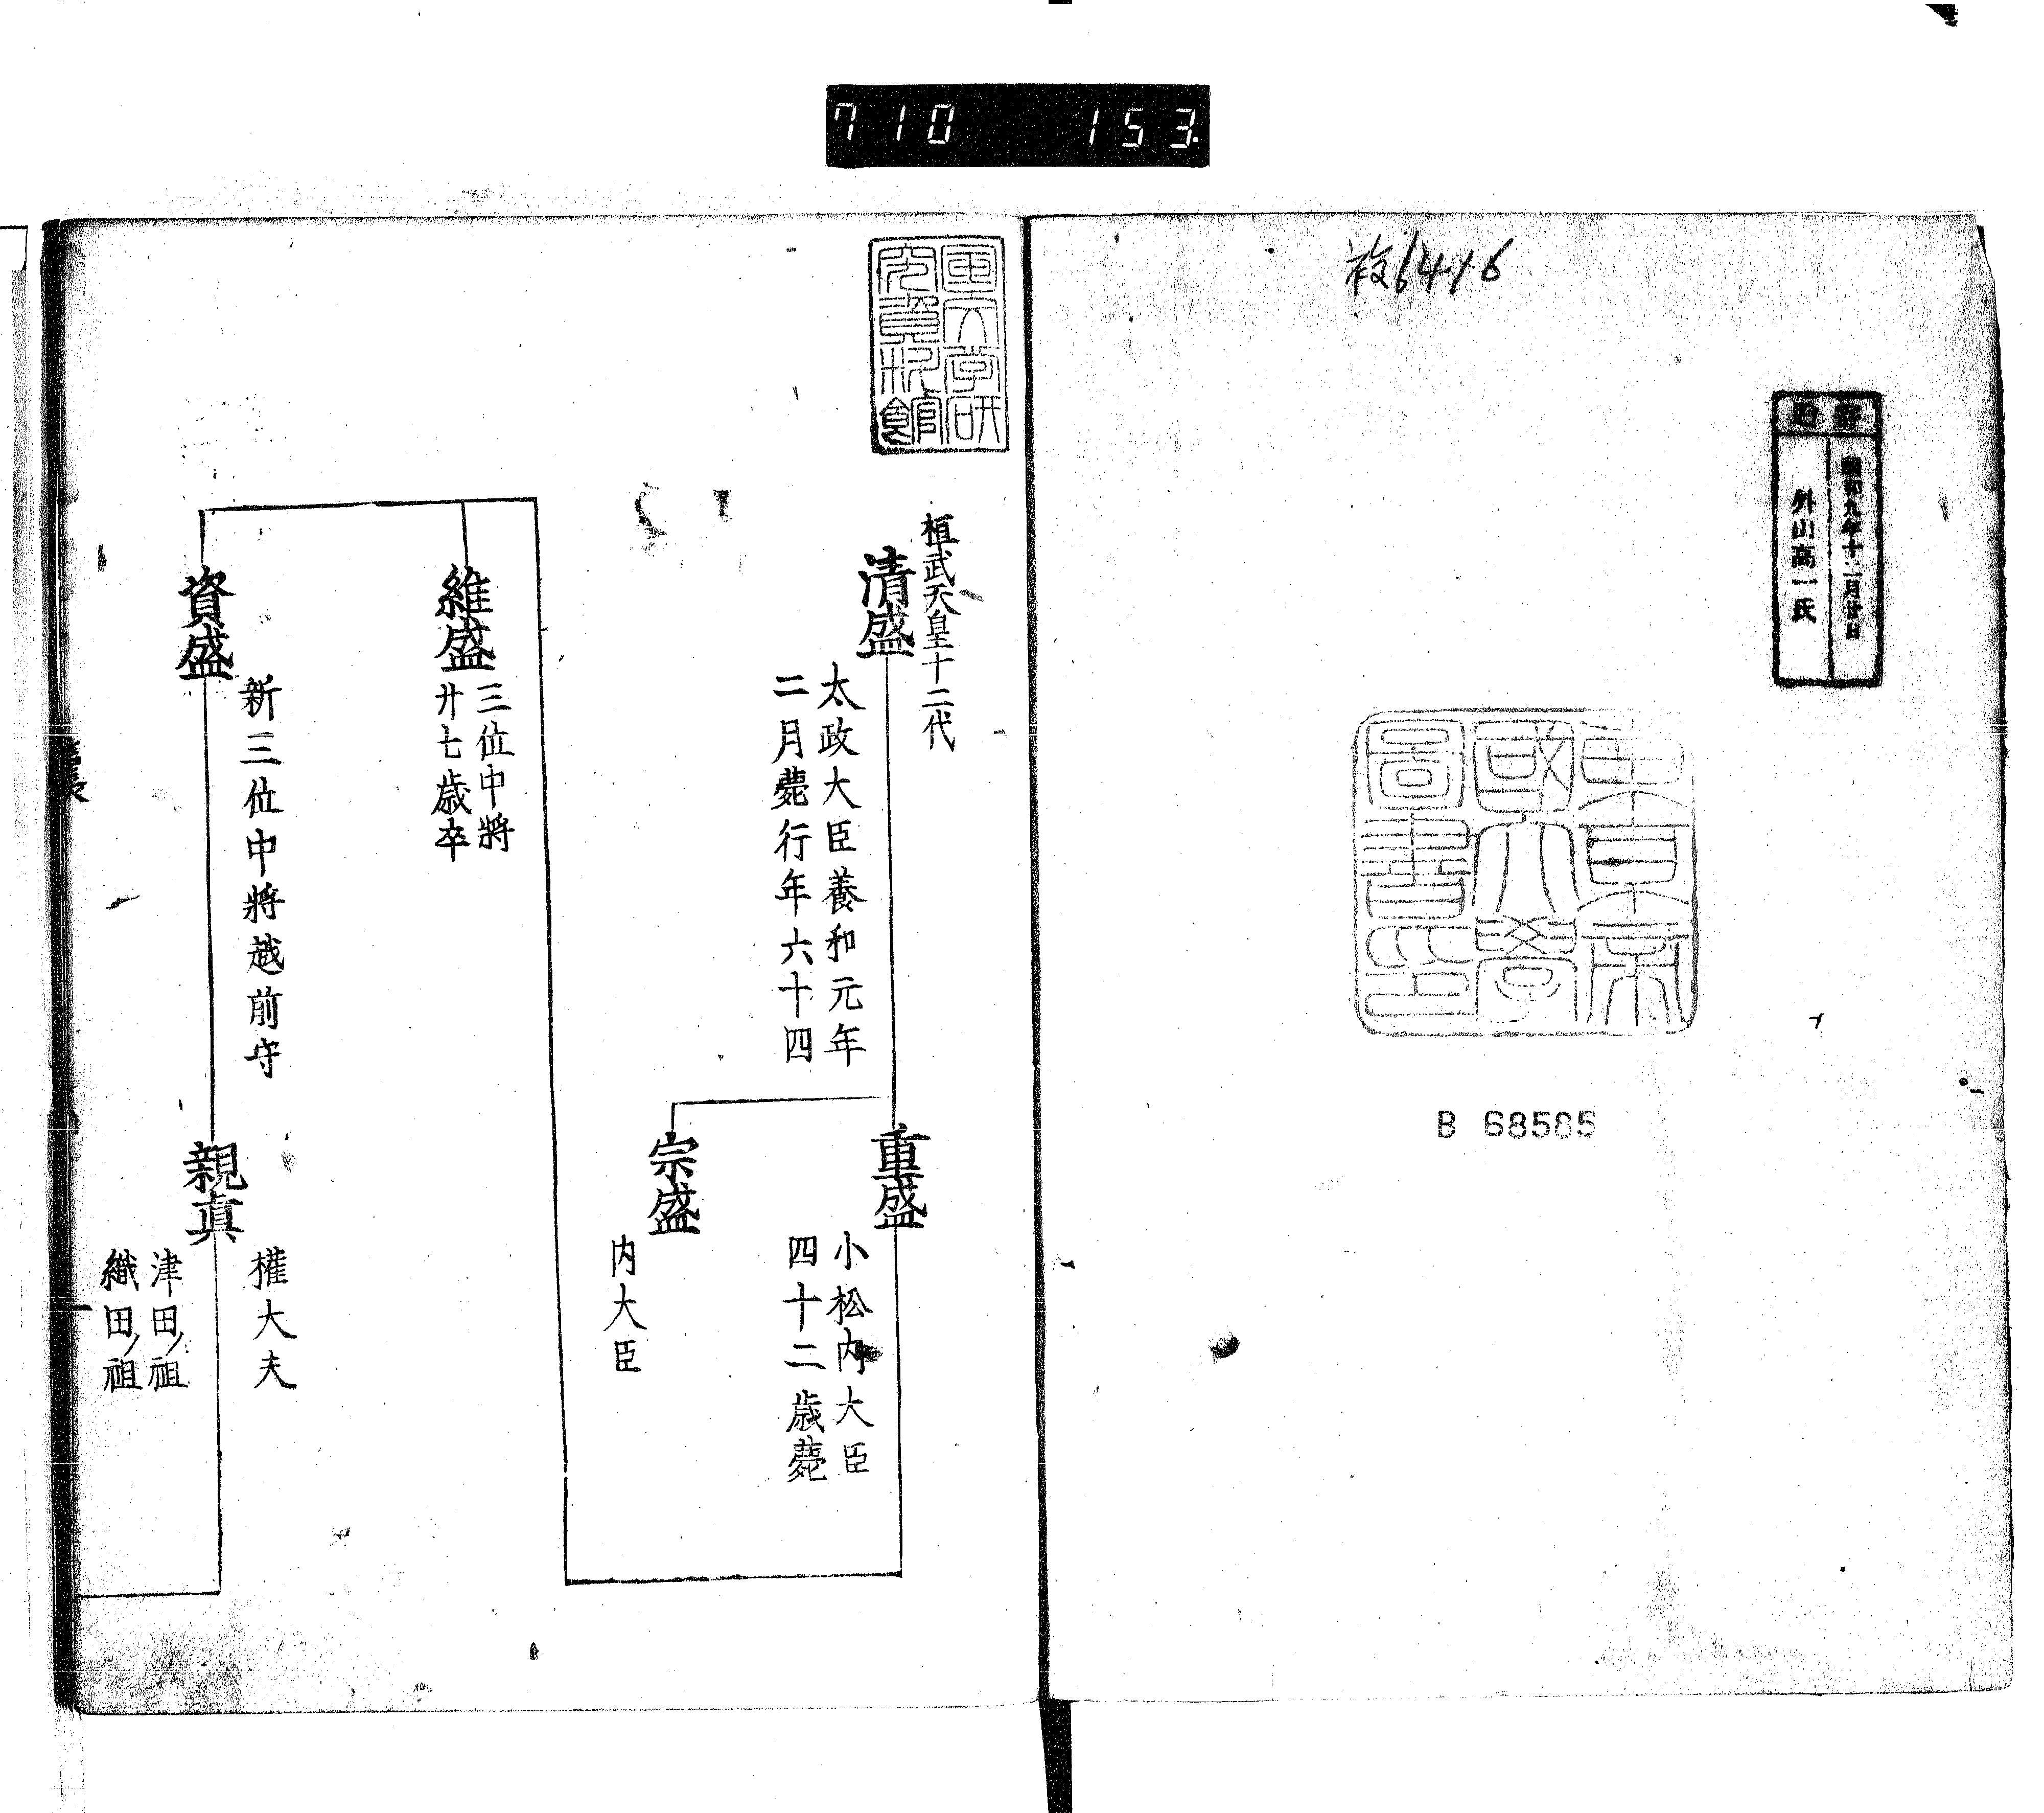 710 153
校64.1.6
寄贈
昭和九年十二月廿日
外山高一氏
東京帝
國大學
圖書印
B 68585
国文学研
究資料館
桓武天皇十二代
清盛
太政大臣養和元年
二月薨行年六十四
重盛
小松内大臣
四十二歳薨
宗盛
内大臣
維盛
三位中將
廾七歳卒
資盛
新三位中將越前守
親真
權大夫
津田ノ祖
織田ノ祖